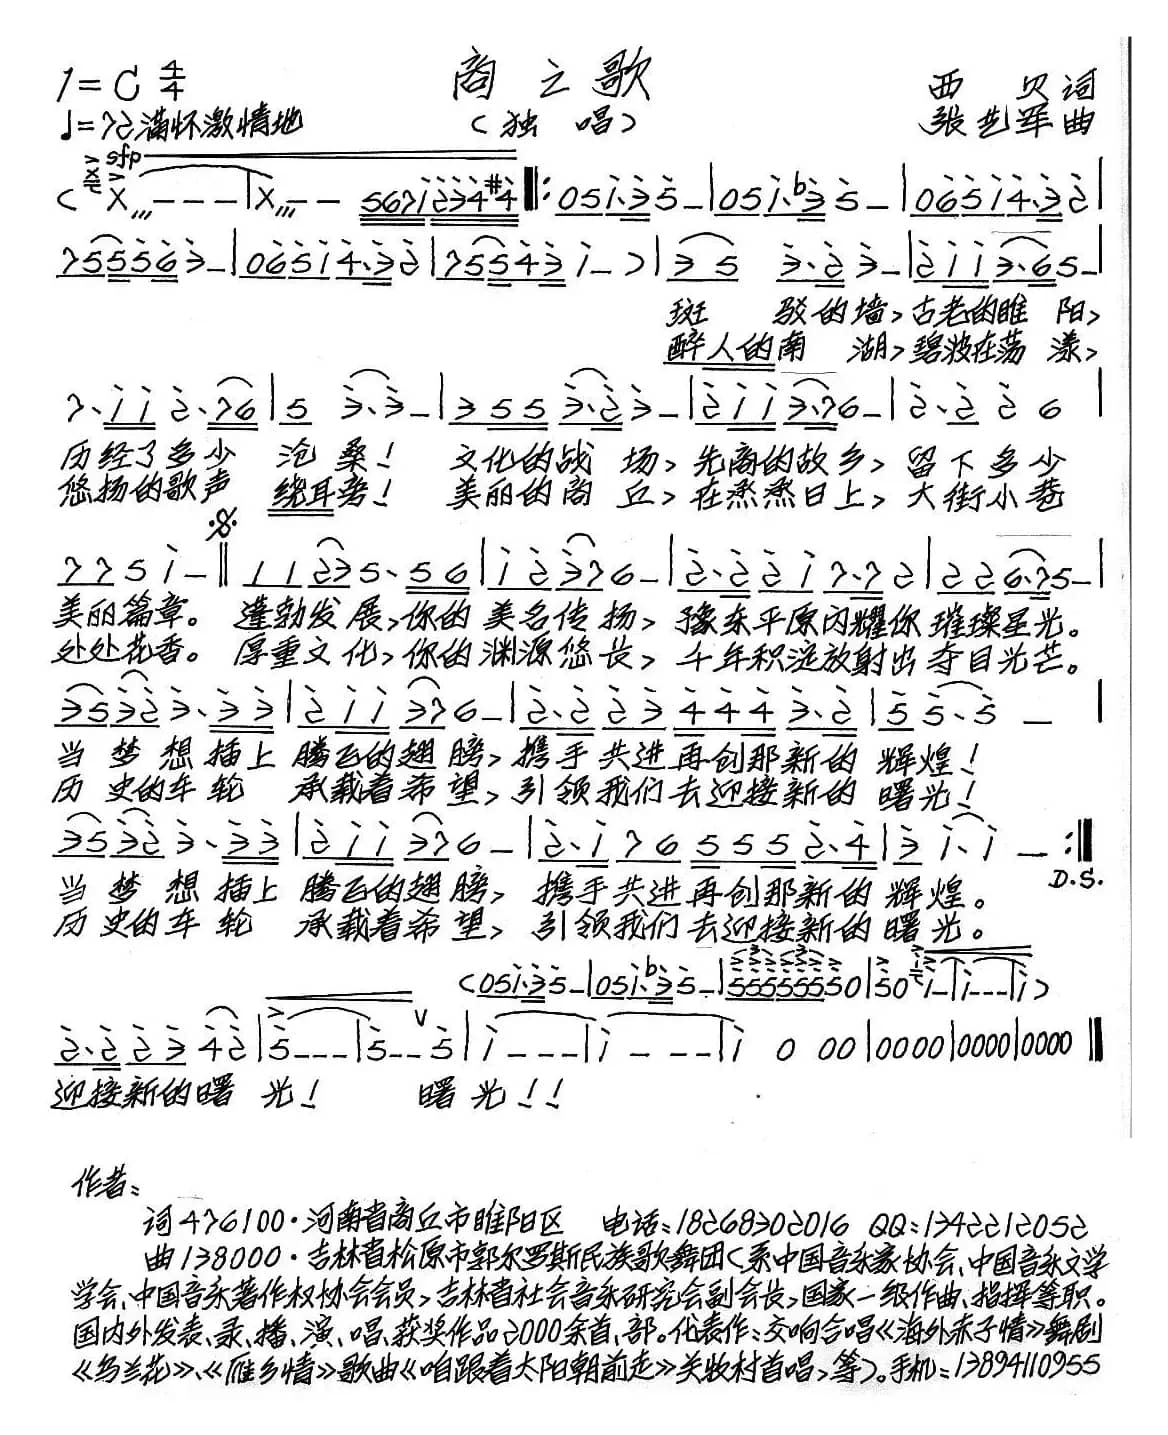 商之歌
1=C 4/4
西贝词
♩=72满怀激情地
(独唱)
张艺军曲
sfp
(X,,,---|X,,,-- 5671234#4‖:051·35-|051·b35-|06514·32|
755563-|06514·32|755431-)|35 3·23-|2113·65-|
斑驳的墙,古老的睢阳,
醉人的南湖,碧波在荡漾,
7·112·76|5 3·3-|3553·23-|2113·76-|2·226|
历经了多少沧桑!文化的战场,先商的故乡,留下多少
悠扬的歌声绕耳旁!美丽的商丘,在蒸蒸日上,大街小巷
7751-‖11235·56|12376-|2·2217·72|226·75-|
美丽篇章。蓬勃发展,你的美名传扬,豫东平原闪耀你璀璨星光。
处处花香。厚重文化,你的渊源悠长,千年积淀放射出夺目光芒。
35323·33|211376-|2·2234443·2|55·5-|
当梦想插上腾飞的翅膀,携手共进再创那新的辉煌!
历史的车轮承载着希望,引领我们去迎接新的曙光!
35323·33|211376-|2·1765552·4|31·1-:‖
D.S.
当梦想插上腾飞的翅膀,携手共进再创那新的辉煌。
历史的车轮承载着希望,引领我们去迎接新的曙光。
(051·35-|051·b35-|55555550|501-|1---|1)
2·22342|5---|5--5|1---|1---|1000|0000|0000|0000‖
迎接新的曙光!曙光!!
作者:
词476100·河南省商丘市睢阳区 电话:18268302016 QQ:1342212052
曲138000·吉林省松原市郭尔罗斯民族歌舞团(系中国音乐家协会、中国音乐文学
学会、中国音乐著作权协会会员,吉林省社会音乐研究会副会长,国家一级作曲、指挥等职。
国内外发表、录、播、演、唱、获奖作品2000余首、部。代表作:交响合唱《海外赤子情》舞剧
《乌兰花》、《雁乡情》歌曲《咱跟着太阳朝前走》关牧村首唱,等)。手机:13894110955